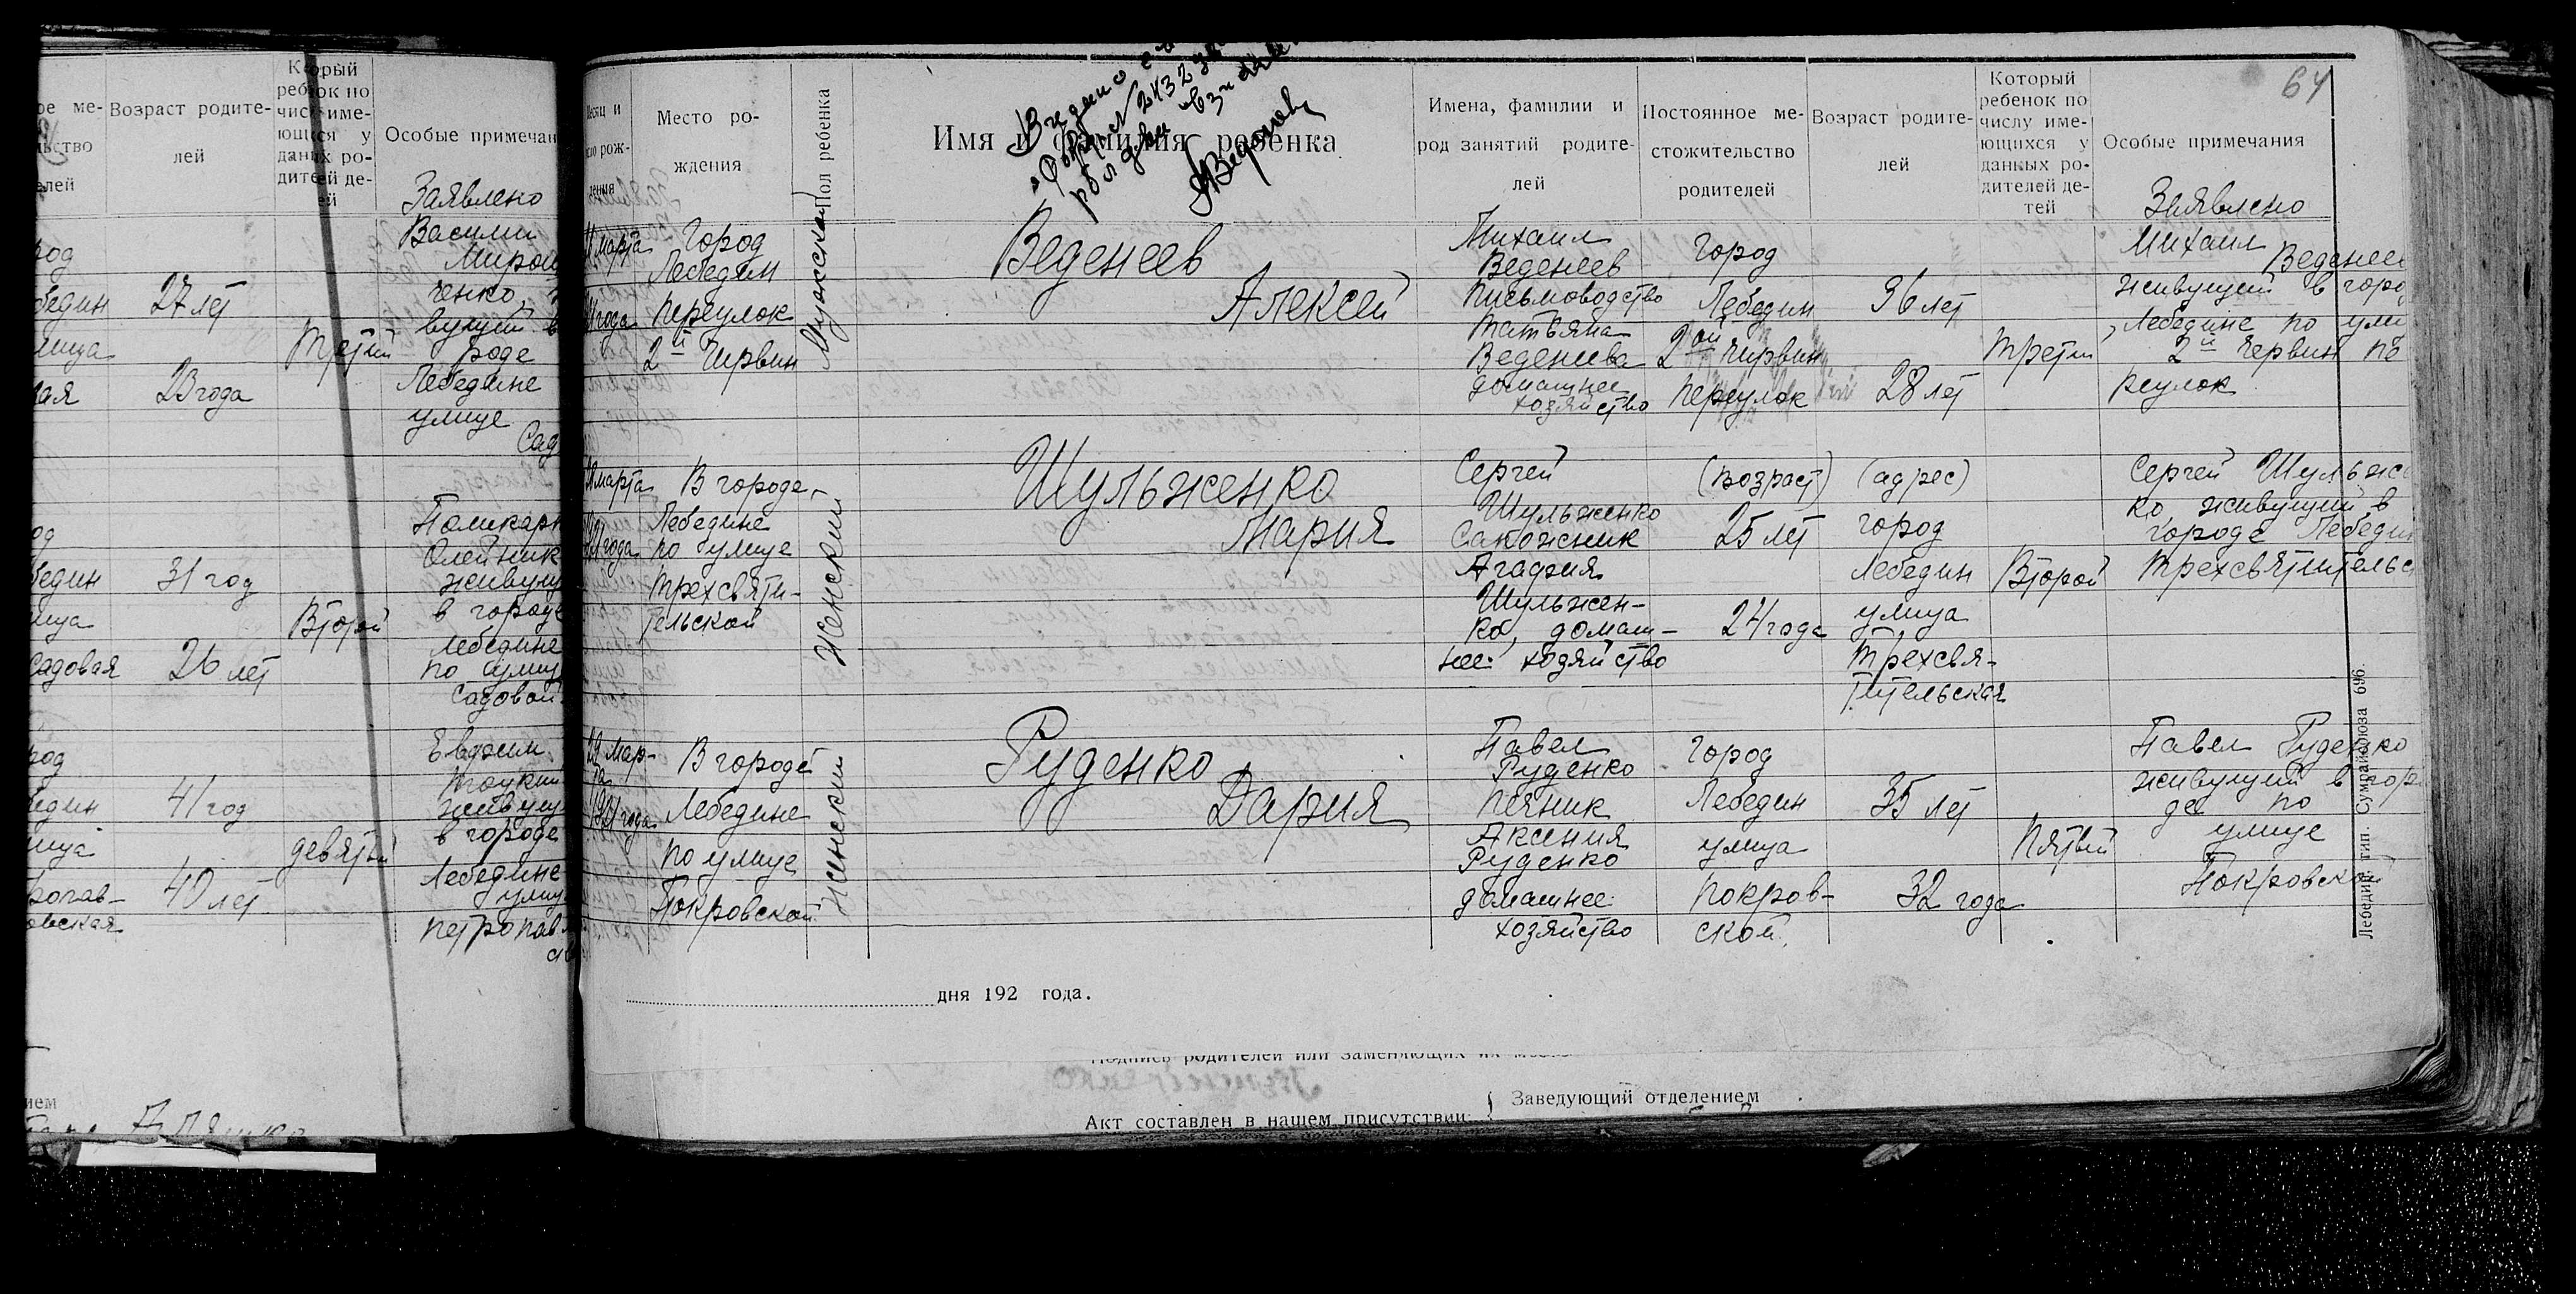 Возраст родите-
лей
Который
ребенок по
числу име-
ющихся у
данных ро-
дителей де-
ей
Особые примечан
Заявлено
27 лет
23 года
третий
Васили
Мирош
ченко,
роде
Лебедине
улице
Сад
31 год
26 лет
Садовая
Второй
Поликарп
Олейник
живущ
в городе
Лебедине
по улиц
Садовой
41 год
40 лет
девятый
Евфим
живущ
в городе
Лебедине
улиц
Петропав
Место ро-
ждения
Пол ребенка
Имя и фамилия ребенка
Имена, фамилии и
род занятий родите-
лей
Постоянное ме-
стожительство
родителей
Возраст родите-
лей
Который
ребенок по
числу име-
ющихся у
данных ро-
дителей де-
тей
Особые примечания
64
Заявлено
марта
года
Город
Лебедин
переулок
2й Червин
Мужской
Веденеев
Алексей
Михаил
Веденеев
письмоводство
Татьяна
Веденеева
домашнее
хозяйство
Город
Лебедин
2ой Червин
переулок
36 лет
28 лет
третий
Михаил
Веденеев
живущий в горо
Лебедине по ули
2й Червин пе
реулок
марта
года
В городе
Лебедине
по улице
Трехсвяти-
тельской
Женский
Шульженко
Мария
Сергей
Шульженко
Сапожник
Агафия
Шульжен-
ко, домаш-
нее хозяйство
(возраст)
25 лет
24 года
(адрес)
город
Лебедин
улица
Трехсвя-
тительская
Второй
Сергей Шульжен
ко, живущий в
городе Лебедин
Трехсвятительс
29 мар-
та
1921 года
В городе
Лебедине
по улице
Покровской
Женский
Руденко
Дария
Павел
Руденко
Печник
Аксения
Руденко
домашнее
хозяйство
город
Лебедин
улица
Покров-
ской
35 лет
32 года
Пятый
Павел Руденко
живущий в горо
де по
улице
Покровской
Лебедин. тип. Сумрайсоюза 696.
дня 192 года.
Подпись родителей или заменяющих их
Заведующий отделением
Акт составлен в нашем присутствии: